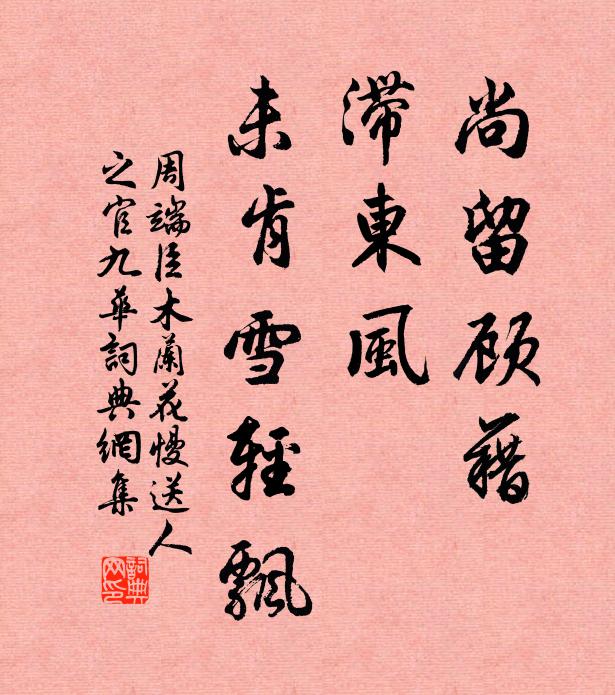 尚留顾藉
滞東風
未肯雪輕飄
周端臣木蘭花慢送人
之官九華詞典網集
詞典网印